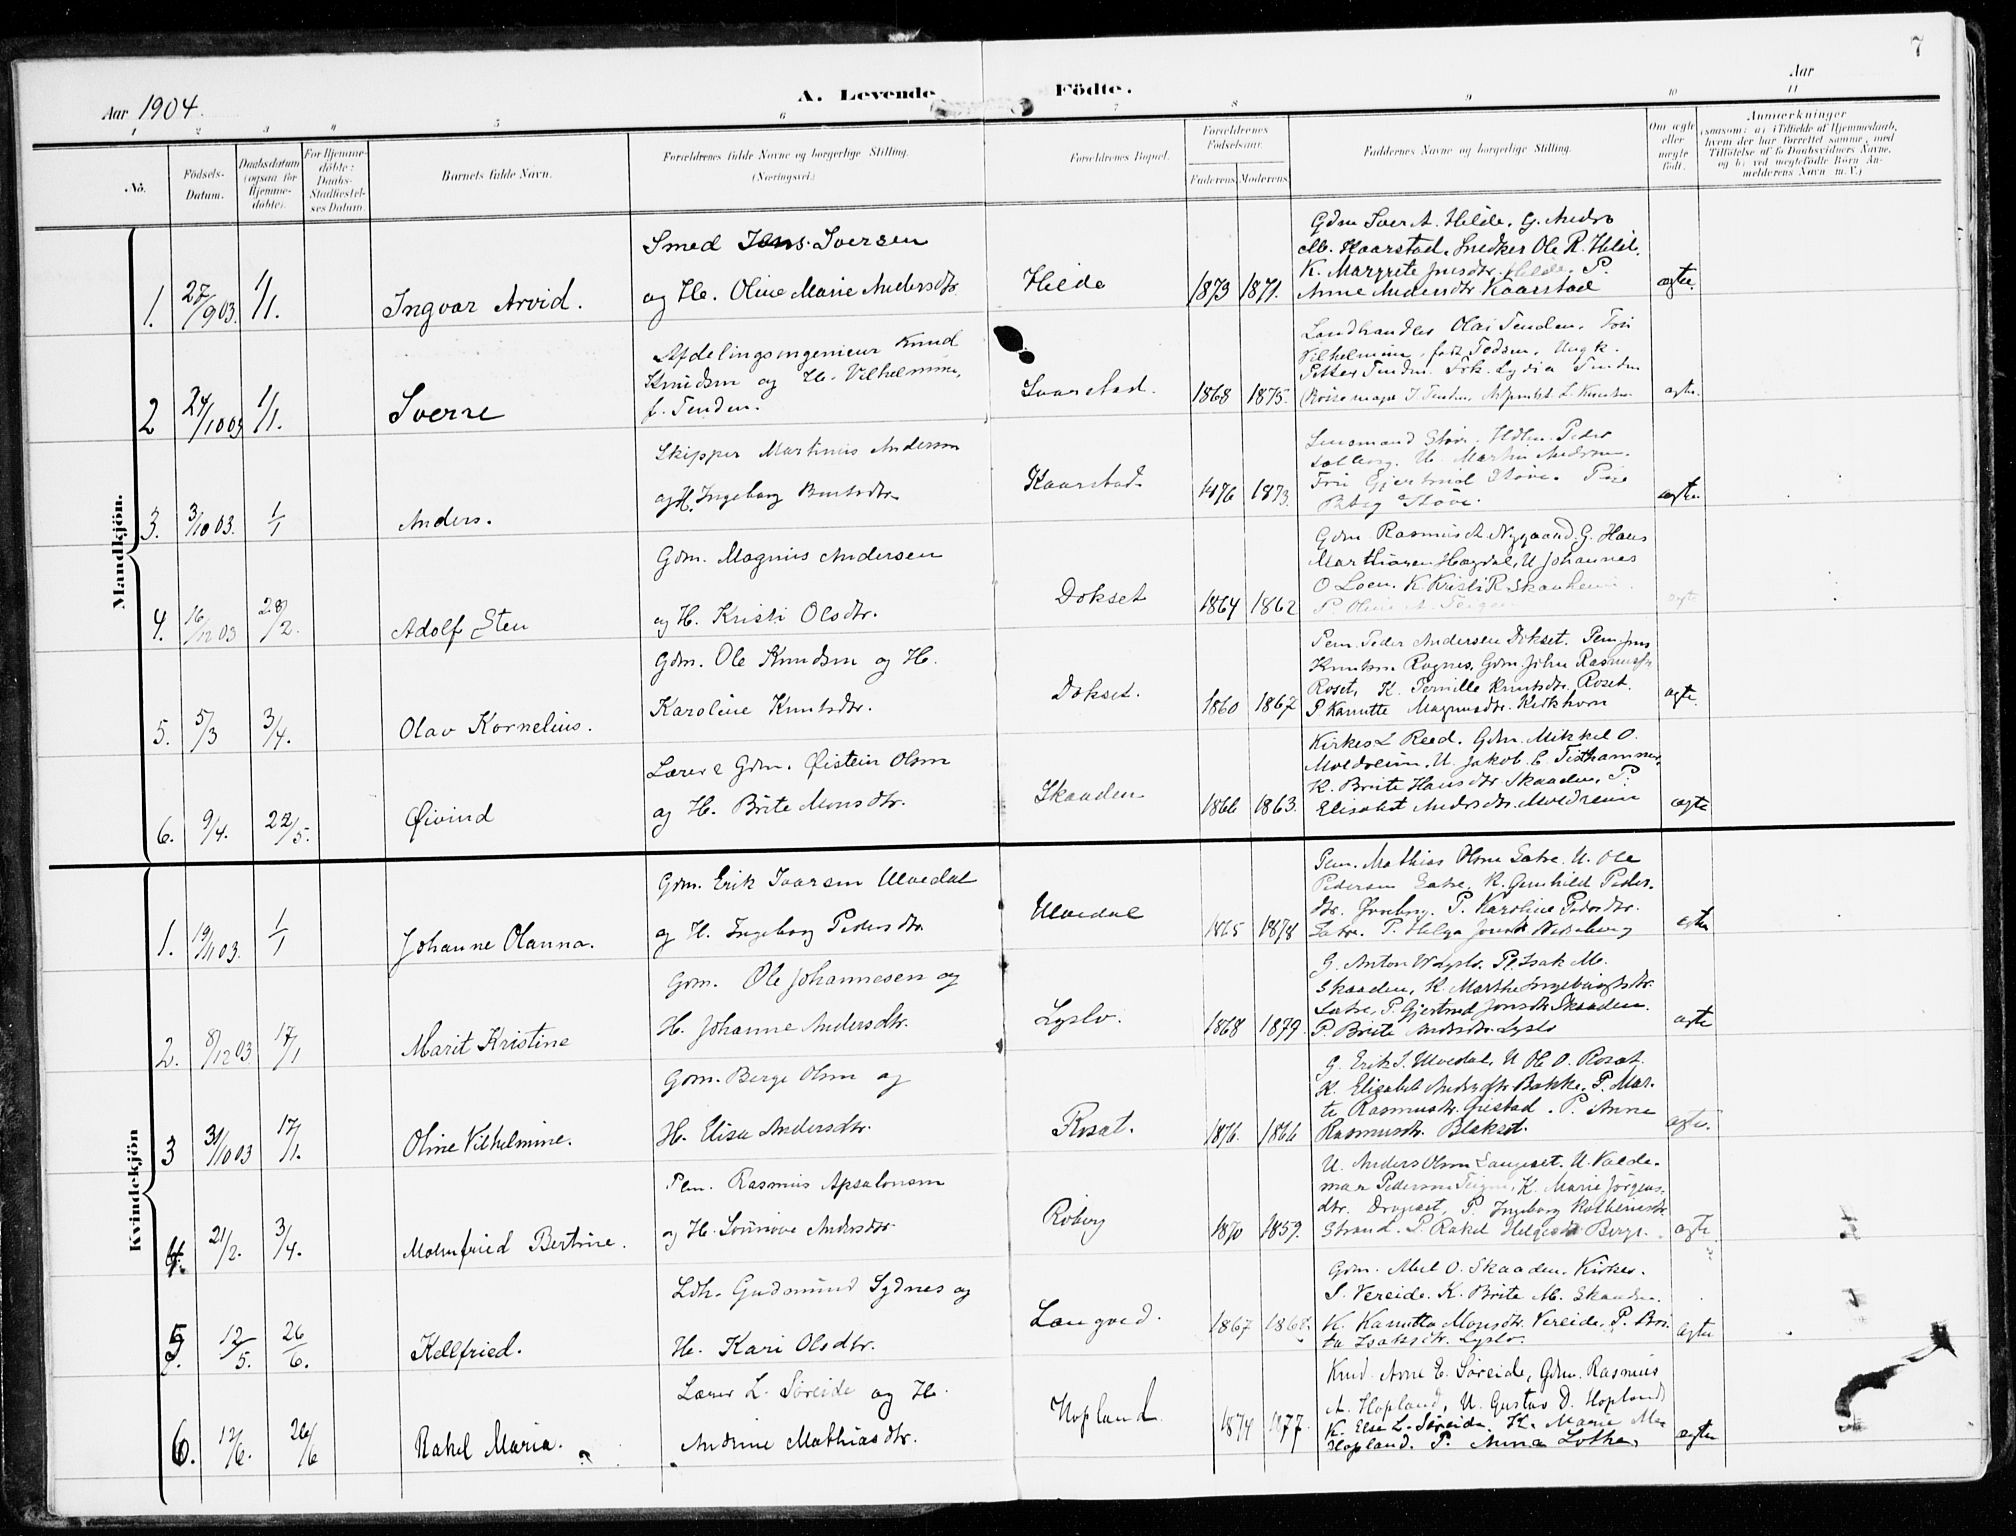 7
Aar 1904.
A. Levende Födte.
Aar
1 2 3 4 5 6 7 8 9 10 11
No.
Födsels-Datum.
Daabsdatum (ogsaa for Hjemme-döbte).
For Hjemme-döbte: Daabs-Stadfæstel-ses Datum.
Barnets fulde Navn.
Forældrenes fulde Navne og borgerlige Stilling. (Næringsvei.)
Forældrenes Bopæl.
Forældrenes Födselsaar.
Faderens. Moderens.
Faddernes Navne og borgerlige Stilling.
Om ægte eller uægte födt.
Anmærkninger
(saasom: a) i Tilfælde af Hjemmedaab, hvem der har forrettet samme, med Tilföielse af to Daabsvidners Navne, og b) ved uægtefödte Börn Anmelderens Navn m. V.)
Mandkjön.
1. 27/9 03. 1/1. Ingvar Arvid.
Smed Jens Iversen
og H. Oline Marie Andersdtr.
Hilde 1873 1871.
Gdm Iver A. Hilde, G. Andro
M. Kaarstad, Snedker Ole R. Hilde,
K. Margrete Jensdtr. Hilde, P.
Anne Andersdtr Kaarstad
ægte.
2 24/10 03 1/1. Sverre
Afdelingsingenieur Knud
Knudsen og H. Vilhelmine,
f. Tenden.
Ivarstad. 1868 1875.
Landhandler Olai Tenden, Frú
Vilhelmine, født Todsen, Ungk.
Petter Tenden. Frk. Lydia Tenden
ægte.
3. 3/10 03. 1/1 Anders.
Skipper Martinus Andersen
og H. Ingeborg Bentsdtr.
Kaarstad 1876 1873.
Lensmand Støve.
Frú Gjertrud Støve.
Støve.
ægte
4. 16/12 03 28/2. Adolf Sten
Gdm. Magnus Andersen
og H. Kristi Olsdtr.
Dokset 1864 1862
Gdm. Rasmus A. Nygaard. G. Hans
Marthinsen Hægdal, U Johannes
O Loen. K. Kristi R Skaaheim
P. Oline A. Teigen
ægte
5. 5/3 3/4. Olav Kornelius.
Gdm. Ole Knudsen og H.
Karoline Knutsdtr.
Dokset. 1860 1867
Pem. Peder Andersen Dokset. Pem. Jens
Knutsen Rognes, Gdm. John Rasmussen
Roset, K. Pernille Knutsdtr. Roset.
P Kanutte Magnusdtr. Kirkhorn
ægte.
6. 9/4. 22/5. Øivind
Lærer & Gdm. Øistein Olsen
og H. Brite Monsdtr.
Skaaden 1866 1863.
Kirkes. L Reed. Gdm. Mikkel O.
Moldreim, U. Jakob C Tisthammer,
K. Brite Hansdtr. Skaaden, P.
Elisabet Andersdtr. Moldreim
ægte
Kvindekjön
1. 19/11 03. 1/1 Johanne Olanna.
Gdm. Erik Ivarsen Ulvedal
og H. Ingeborg Pedersdtr.
Ulvedal 1865 1878
Pem. Mathias Olsen Sætre. U. Ole
Pedersen Sætre, K. Gunhild Peders-
dtr. P. Karoline Pedersdtr.
Sætre. P. Helga
ægte
2. 8/12 03 17/1 Marit Kristine
Gdm. Ole Johannesen og
H. Johanne Andersdtr.
Lyslo. 1868 1879.
G. Anton W Lyslo. P. Isak M.
Skaaden, K. Marthe Ingebrigtsdtr.
Sætre, P. Gjertrud Jonsdtr. Skaaden.
P. Brite Andersdtr. Lyslo
ægte
3 31/10 03 17/1. Oline Vilhelmine.
Gdm. Berge Olsen og
H. Elisa Andersdtr.
Roset. 1876. 1866
G. Erik I. Ulvedal, U Ole O. Roset.
K. Elisabet Andersdtr. Bakke, P. Mar-
te Rasmusdtr. Gjestad. P. Anne
Rasmusdtr. Blakset.
ægte.
4. 21/2. 3/4. Malmfried Bertine.
Pem. Rasmus Apsalonsen
og H. Sønnøve Andersdtr.
Roberg 1870 1859.
U. Anders Olsen Langeset. U. Valde-
mar Pedersen Teigen, K. Marie Jørgens-
dtr. Drageset, P. Ingeborg
Strand. P. Rakel Helgesdtr Berge.
ægte
5. 12/5. 26/6. Kellfried.
Ldh. Gudmund Sydnes og
H. Kari Olsdtr.
Langved. 1867 1868.
Gdm. Abel O. Skaaden. Kirkes.
S. Vereide. K. Brite M. Skaaden.
K. Kanutta Monsdtr. Vereide, P. Bri-
ta Isaksdtr. Lyslo.
ægte
6. 12/6. 26/6 Rakel Maria.
Lærer L. Søreide og H.
Andrine Mathiasdtr.
Hopland 1874 1877.
Knud Arne E. Søreide, Gdm. Rasmus
A. Hopland, U. Gustav D. Hopland
K. Else L. Søreide. K. Marie
Hopland. P. Anna Lothe.
ægte